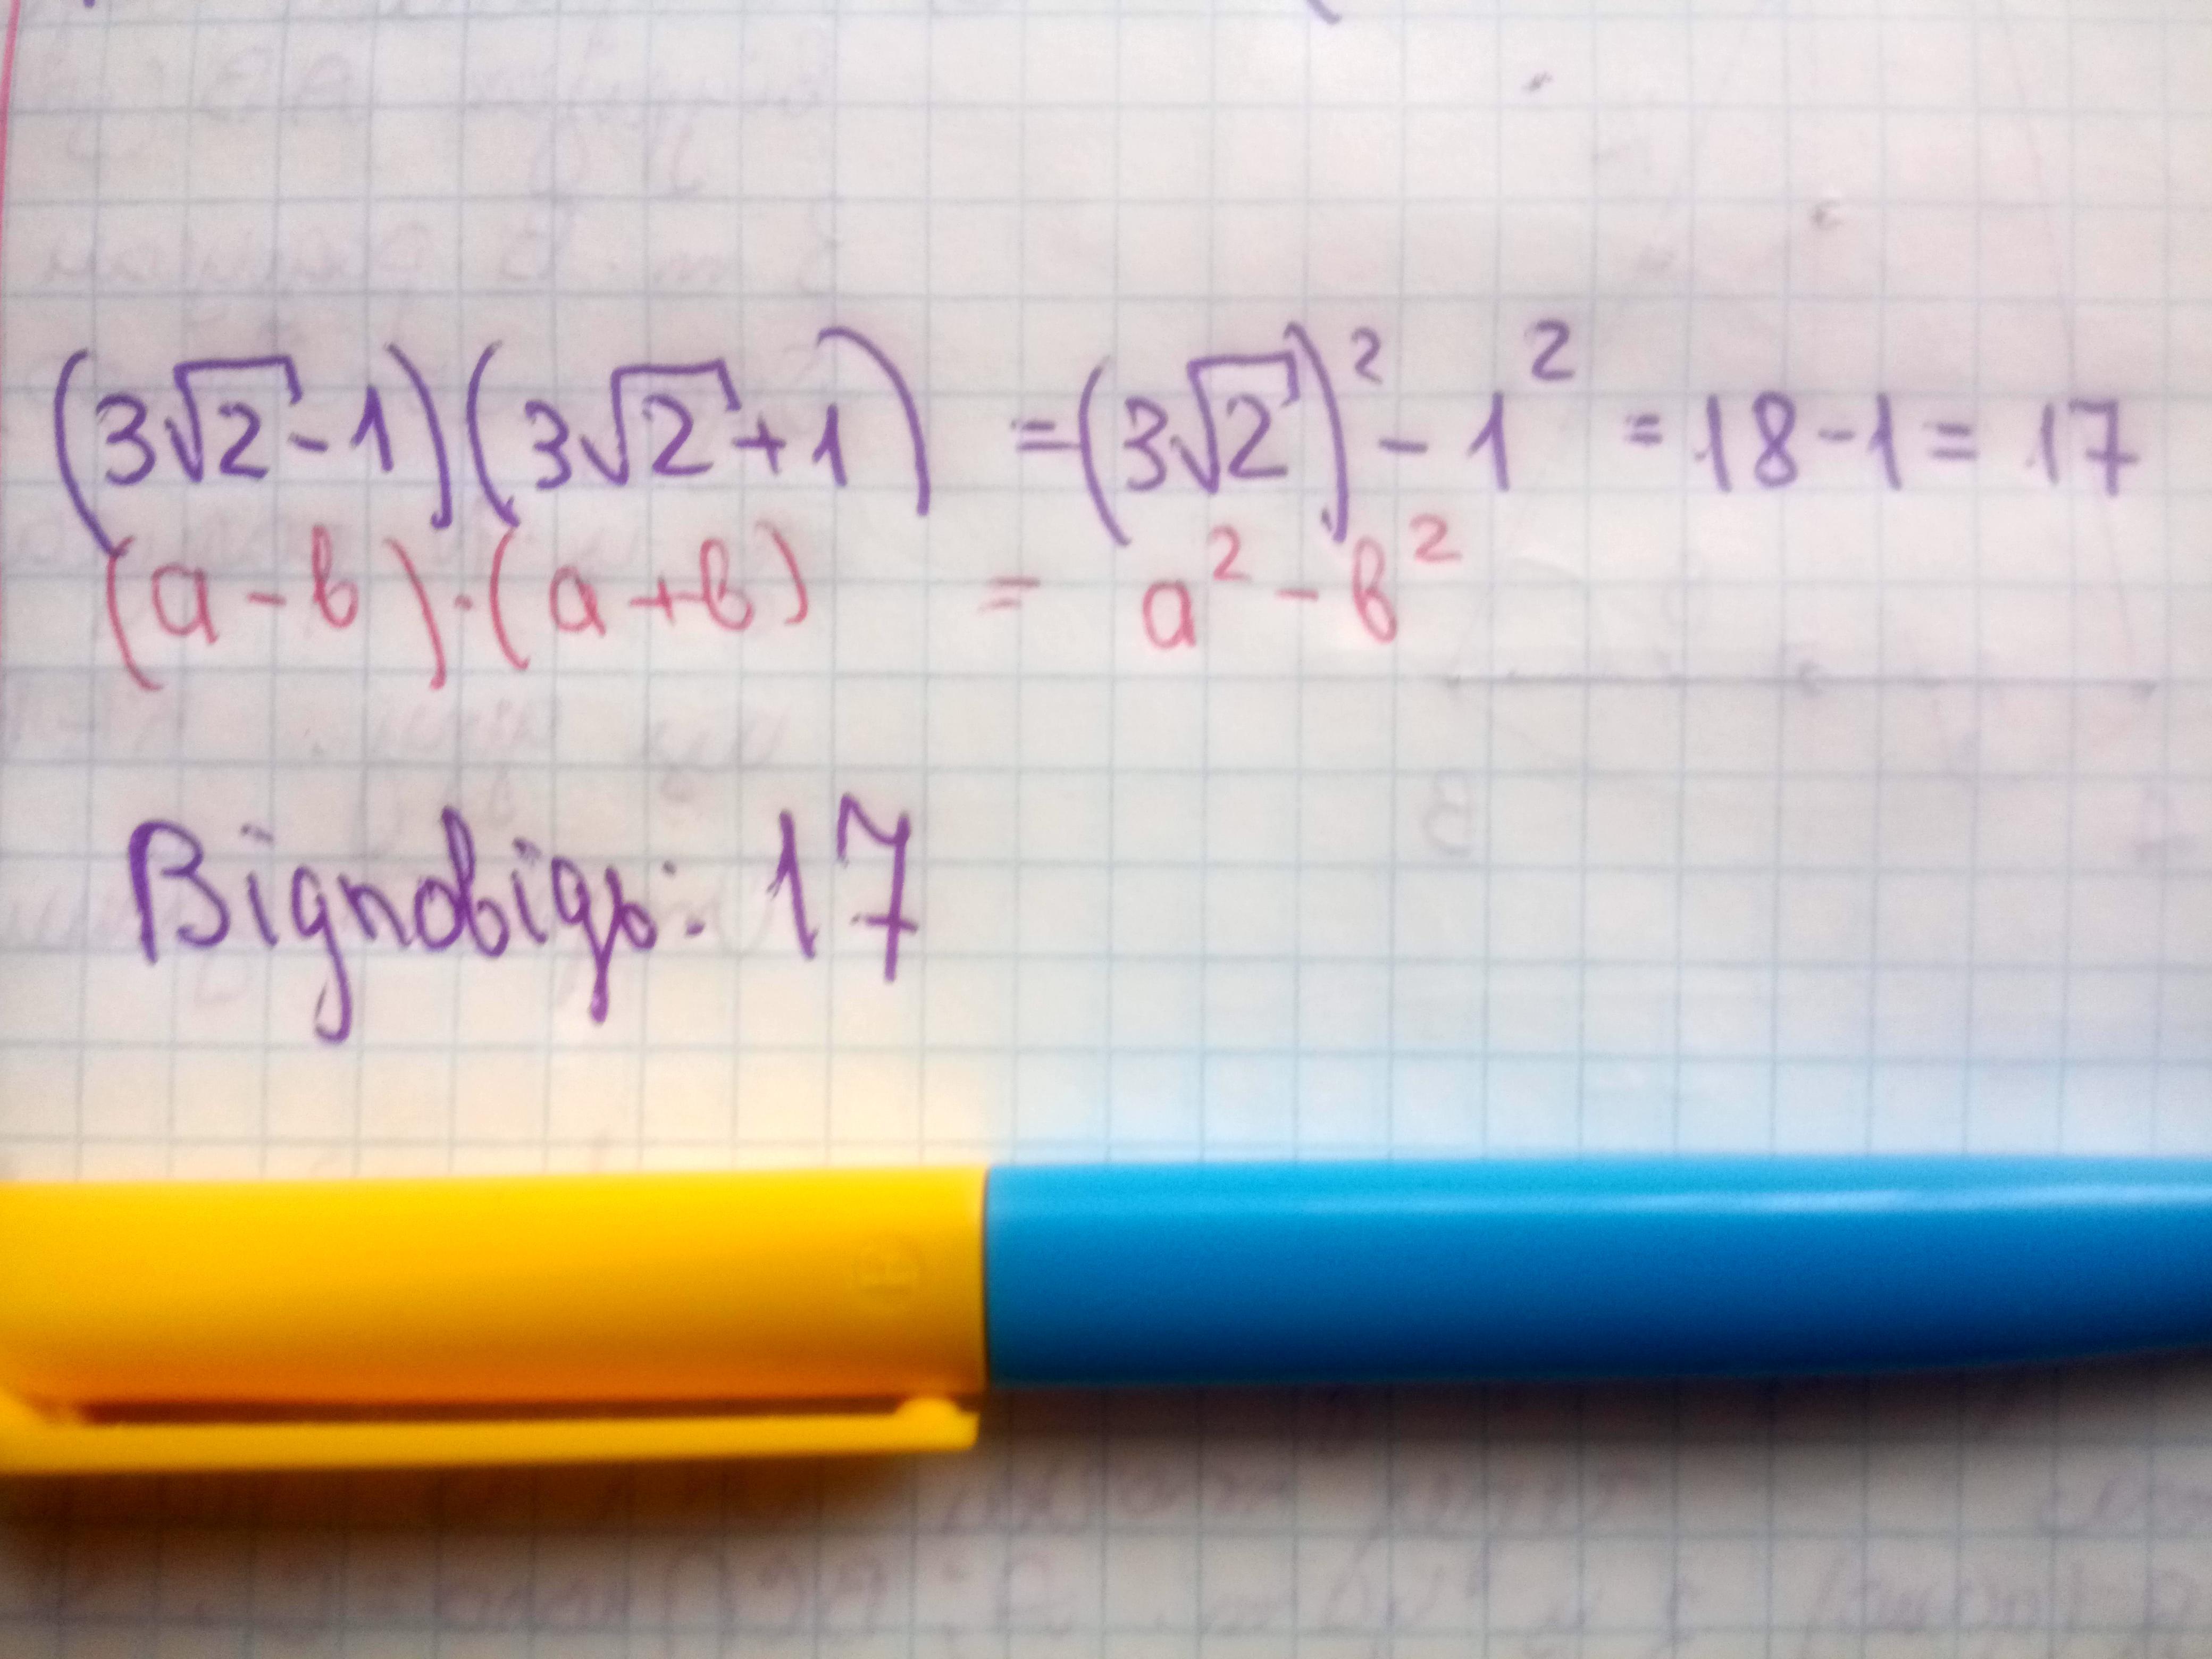 (3√2-1)(3√2+1) =(3√2)²-1² =18-1= 17
(a-b)·(a+b) = a²-b²
Відповідь: 17